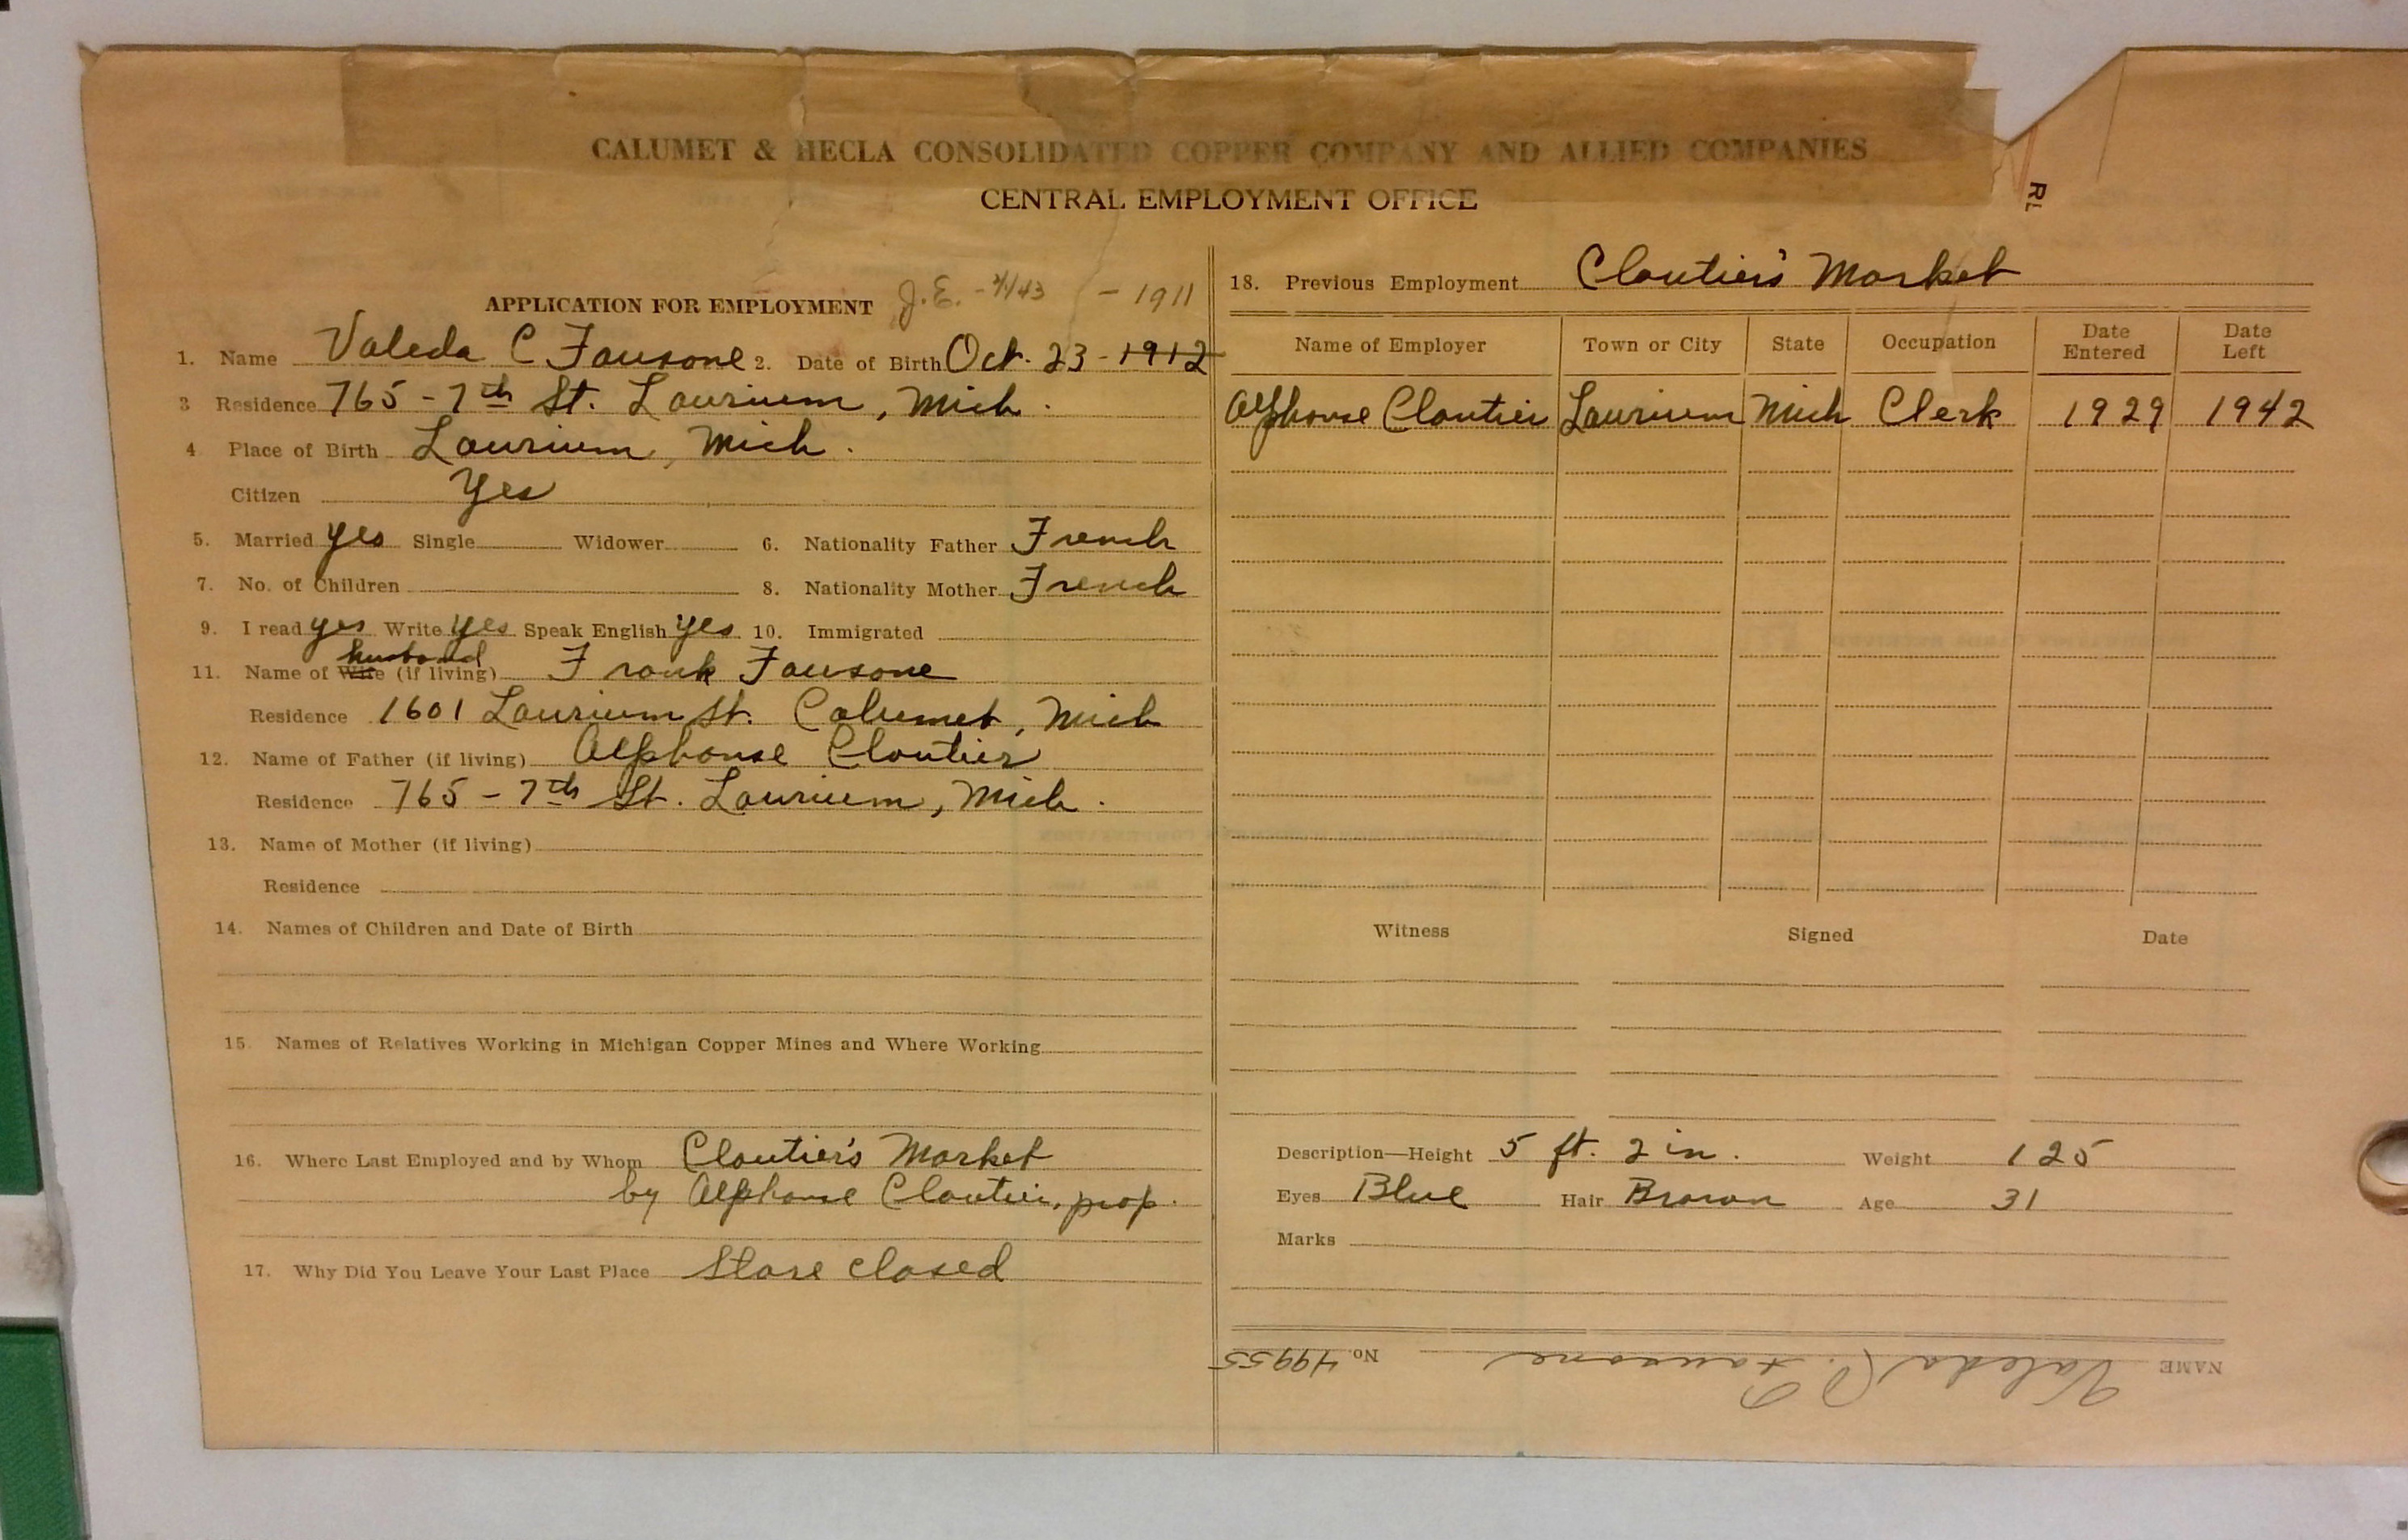 CALUMET & HECLA CONSOLIDATED COPPER COMPANY AND ALLIED COMPANIES
CENTRAL EMPLOYMENT OFFICE
RL
APPLICATION FOR EMPLOYMENT J.E. - 7/1/43 - 1911
1. Name Valeda C Fausone 2. Date of Birth Oct. 23 - 1912
3 Residence 765 - 7th St. Laurium, Mich.
4 Place of Birth Laurium, Mich.
Citizen Yes
5. Married yes Single Widower 6. Nationality Father French
7. No. of Children 8. Nationality Mother French
9. I read yes Write yes Speak English yes 10. Immigrated
husband
11. Name of Wife (if living) Frank Fausone
Residence 1601 Laurium St. Calumet, Mich
12. Name of Father (if living) Alphonse Cloutier
Residence 765 - 7th St. Laurium, Mich.
13. Name of Mother (if living)
Residence
14. Names of Children and Date of Birth
15. Names of Relatives Working in Michigan Copper Mines and Where Working
16. Where Last Employed and by Whom Cloutier's Market
by Alphonse Cloutier, prop.
17. Why Did You Leave Your Last Place Store closed
18. Previous Employment Cloutier's Market
Name of Employer Town or City State Occupation Date Entered Date Left
Alphonse Cloutier Laurium Mich Clerk 1929 1942
Witness Signed Date
Description—Height 5 ft. 2 in. Weight 125
Eyes Blue Hair Brown Age 31
Marks
NAME Valeda C. Fausone No. 49955